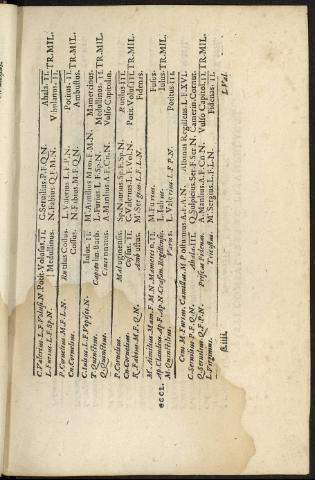 C.Valerius.L.F.Volusi.N.Potit.Volusus.II. C.Servilius.P.F.Q.N. Ahala.II.TR.MIL.
L.Furius.L.F.Sp.N. Medullinus. N.Fabius.Q.F.M.N. Vibolanus.II.
P.Cornelius.M.F.L.N. Rutilus Cossus. L.Valerius L.F.P.N. Potitus.II.TR.MIL.
Cn.Cornelius. Cossus. N.Fabius.M.F.Q.N. Ambustus.
C.Iulius.L.F.Vopisci.N. Iulus.II. M'.Aemilius Mam.F.M.N. Mamercinus. TR.MIL.
T.Quinctius. Capitolin.Barb. L.Furius.L.F.Sp.N. Medullinus.II.
Q.Quinctius. Cincinnatus. A.Manlius.A.F.Cn.N. Vulso Capitolin.
P.Cornelius. Maluginensis. Sp.Nautius.Sp.F.Sp.N. Rutilus III.TR.MIL.
Cn.Cornelius. Cossus.II. C.Valerius.L.F.Vol.N. Potit.Voluf.III.
K.Fabius.M.F.Q.N. Ambustus. M'.Sergius.L.F.L.N. Fidenas.
M'.Aemilius Mam.F.M.N. Mamercin.II. M.Furius. Fusus. TR.MIL.
CCCL. Ap.Claudius.Ap.F.Ap.N.Crassus.Regillensis. L.Iulius. Iulus.
M.Quintilius. Varus. L.Valerius.L.F.P.N. Potitus.III.
Cens.M.Furius. Camillus. M.Postumius.A.F.A.N. Albinus Regillens.L.F.XVI.
C.Servilius.P.F.Q.N. Ahala.III. Q.Sulpicius.Ser.F.Ser.N. Camerin.Cornut.TR.MIL.
Q.Servilius.Q.F.P.N. Priscus Fidenas. A.Manlius.A.F.Cn.N. Vulso Capitol.II.
L.Virginius. Tricostus. M'.Sergius.L.F.L.N. Fidenas.II.
B.iiii. L.Val.